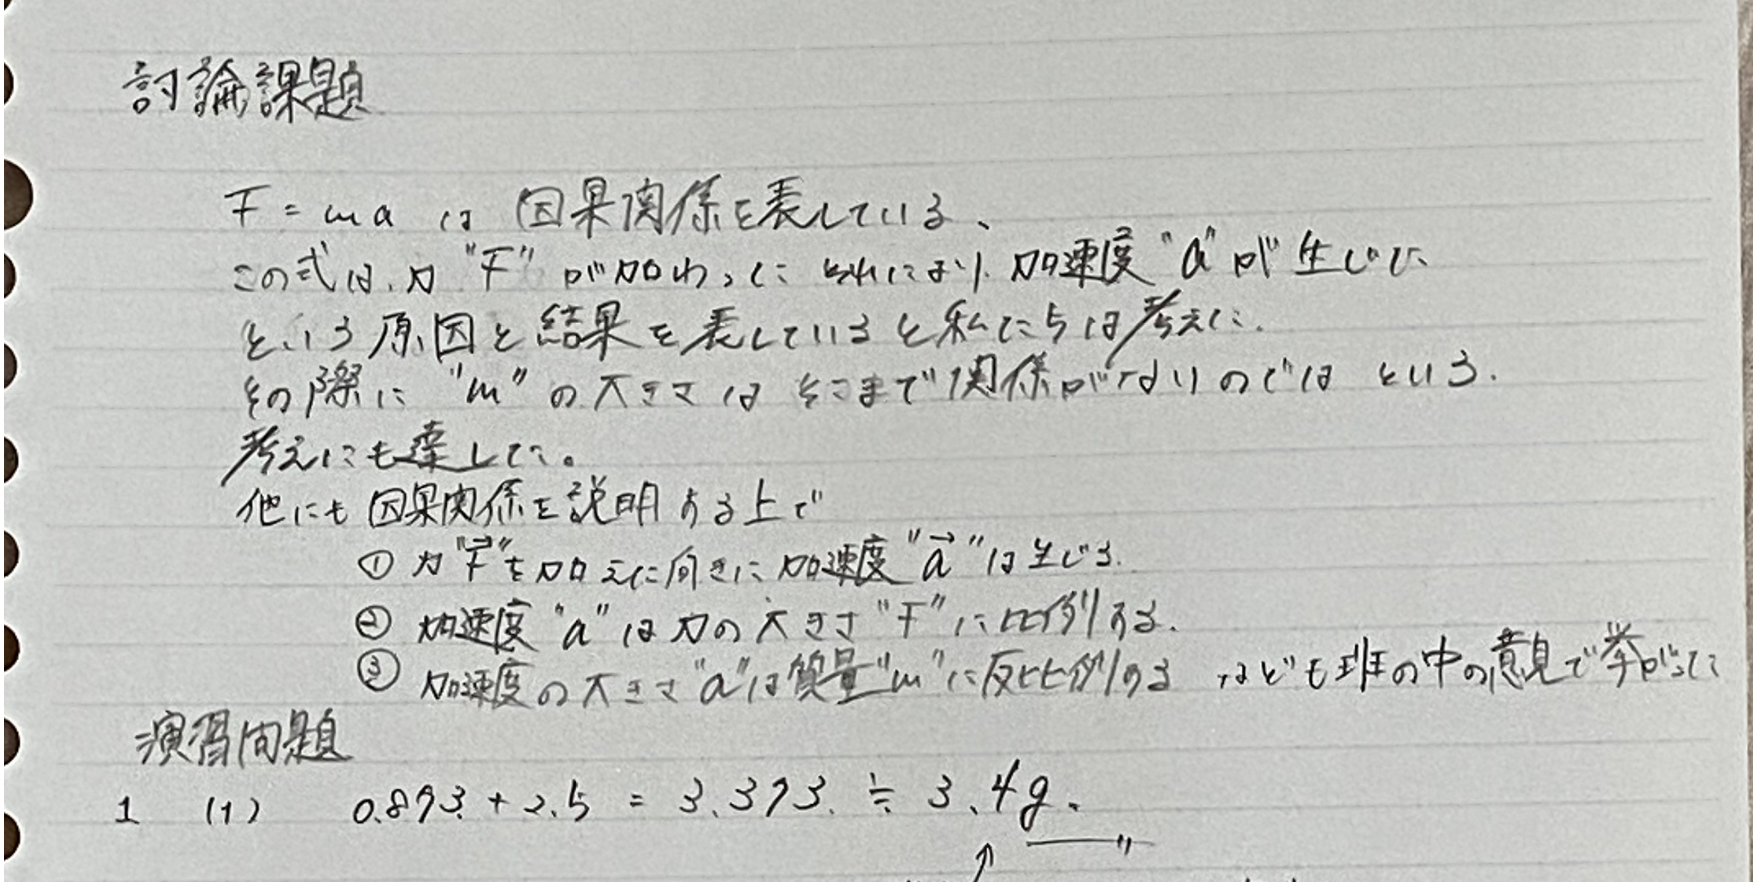 討論課題
F = ma は 因果関係を表している、
この式は、力 "F" が加わった それにより、加速度 "a" が 生じた
という 原因と 結果 を 表していると私たちは考えた.
その際に "m" の大きさは そこまで関係がないのでは という.
考えにも達した。
他にも 因果関係を説明する上で
① 力"F⃗"を加えた向きに 加速度 "a⃗" は生じる.
② 加速度 "a" は力の大きさ "F" に比例する.
③ 加速度の大きさ"a"は質量"m"に反比例する なども班の中の意見で挙がった
演習問題
1 (1) 0.893 + 2.5 = 3.393. ≒ 3.4g.